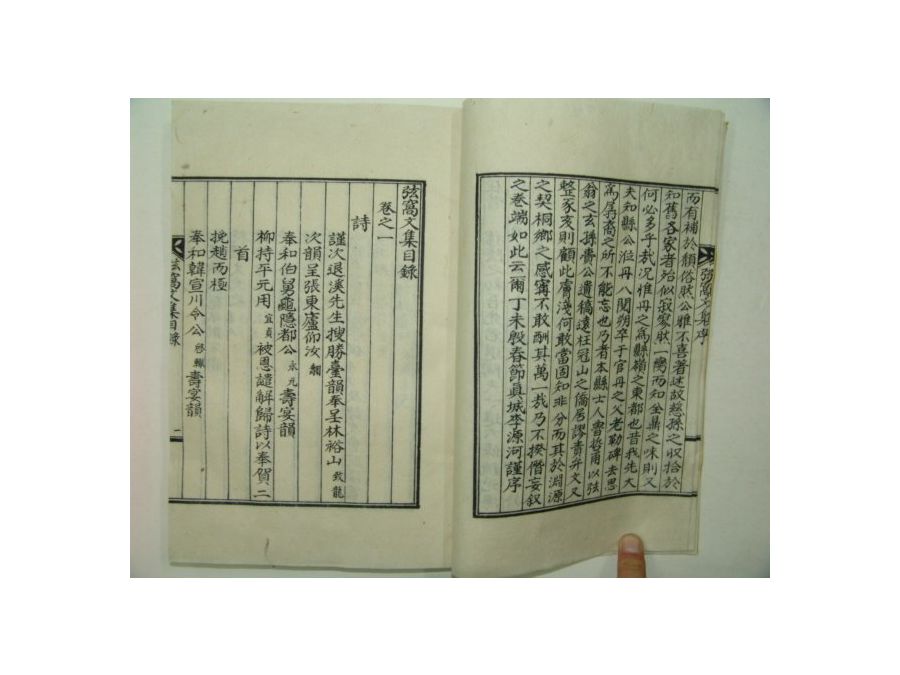 而有補於頹俗然公雅不喜著述故慈孫之收拾於
知舊各家者殆似寂寥然一臠而知全鼎之味則又
何必多乎哉況惟丹之爲縣嶺之東都也昔我先大
夫知縣公涖丹八閱朔卒于官丹之父老勒碑去思
寓㞒裔之所不能忘也乃者本縣士人曺哲甫以弦
翁之玄孫贵公遺稿遠枉冠山之僑居謬責弁文又
整豕亥則顧此膚淺何敢當固知非分而其於淵源
之契桐鄉之感寗不敢酬其萬一哉乃不揆僭妄叙
之卷端如此云爾丁未殷春節眞城李源河謹序
弦窩文集序
弦窩文集目錄
卷之一
詩
謹次退溪先生搜勝臺韻奉呈林裕山 致龍
次韻呈張東廬仰汝 翱
奉和伯舅龜隱都公 永元 壽宴韻
柳持平元用 宜貞 被恩譴解歸詩以奉賀 二
首
挽趙而極
奉和韓宣川令公 啓轍 壽宴韻
弦窩文集目錄
一